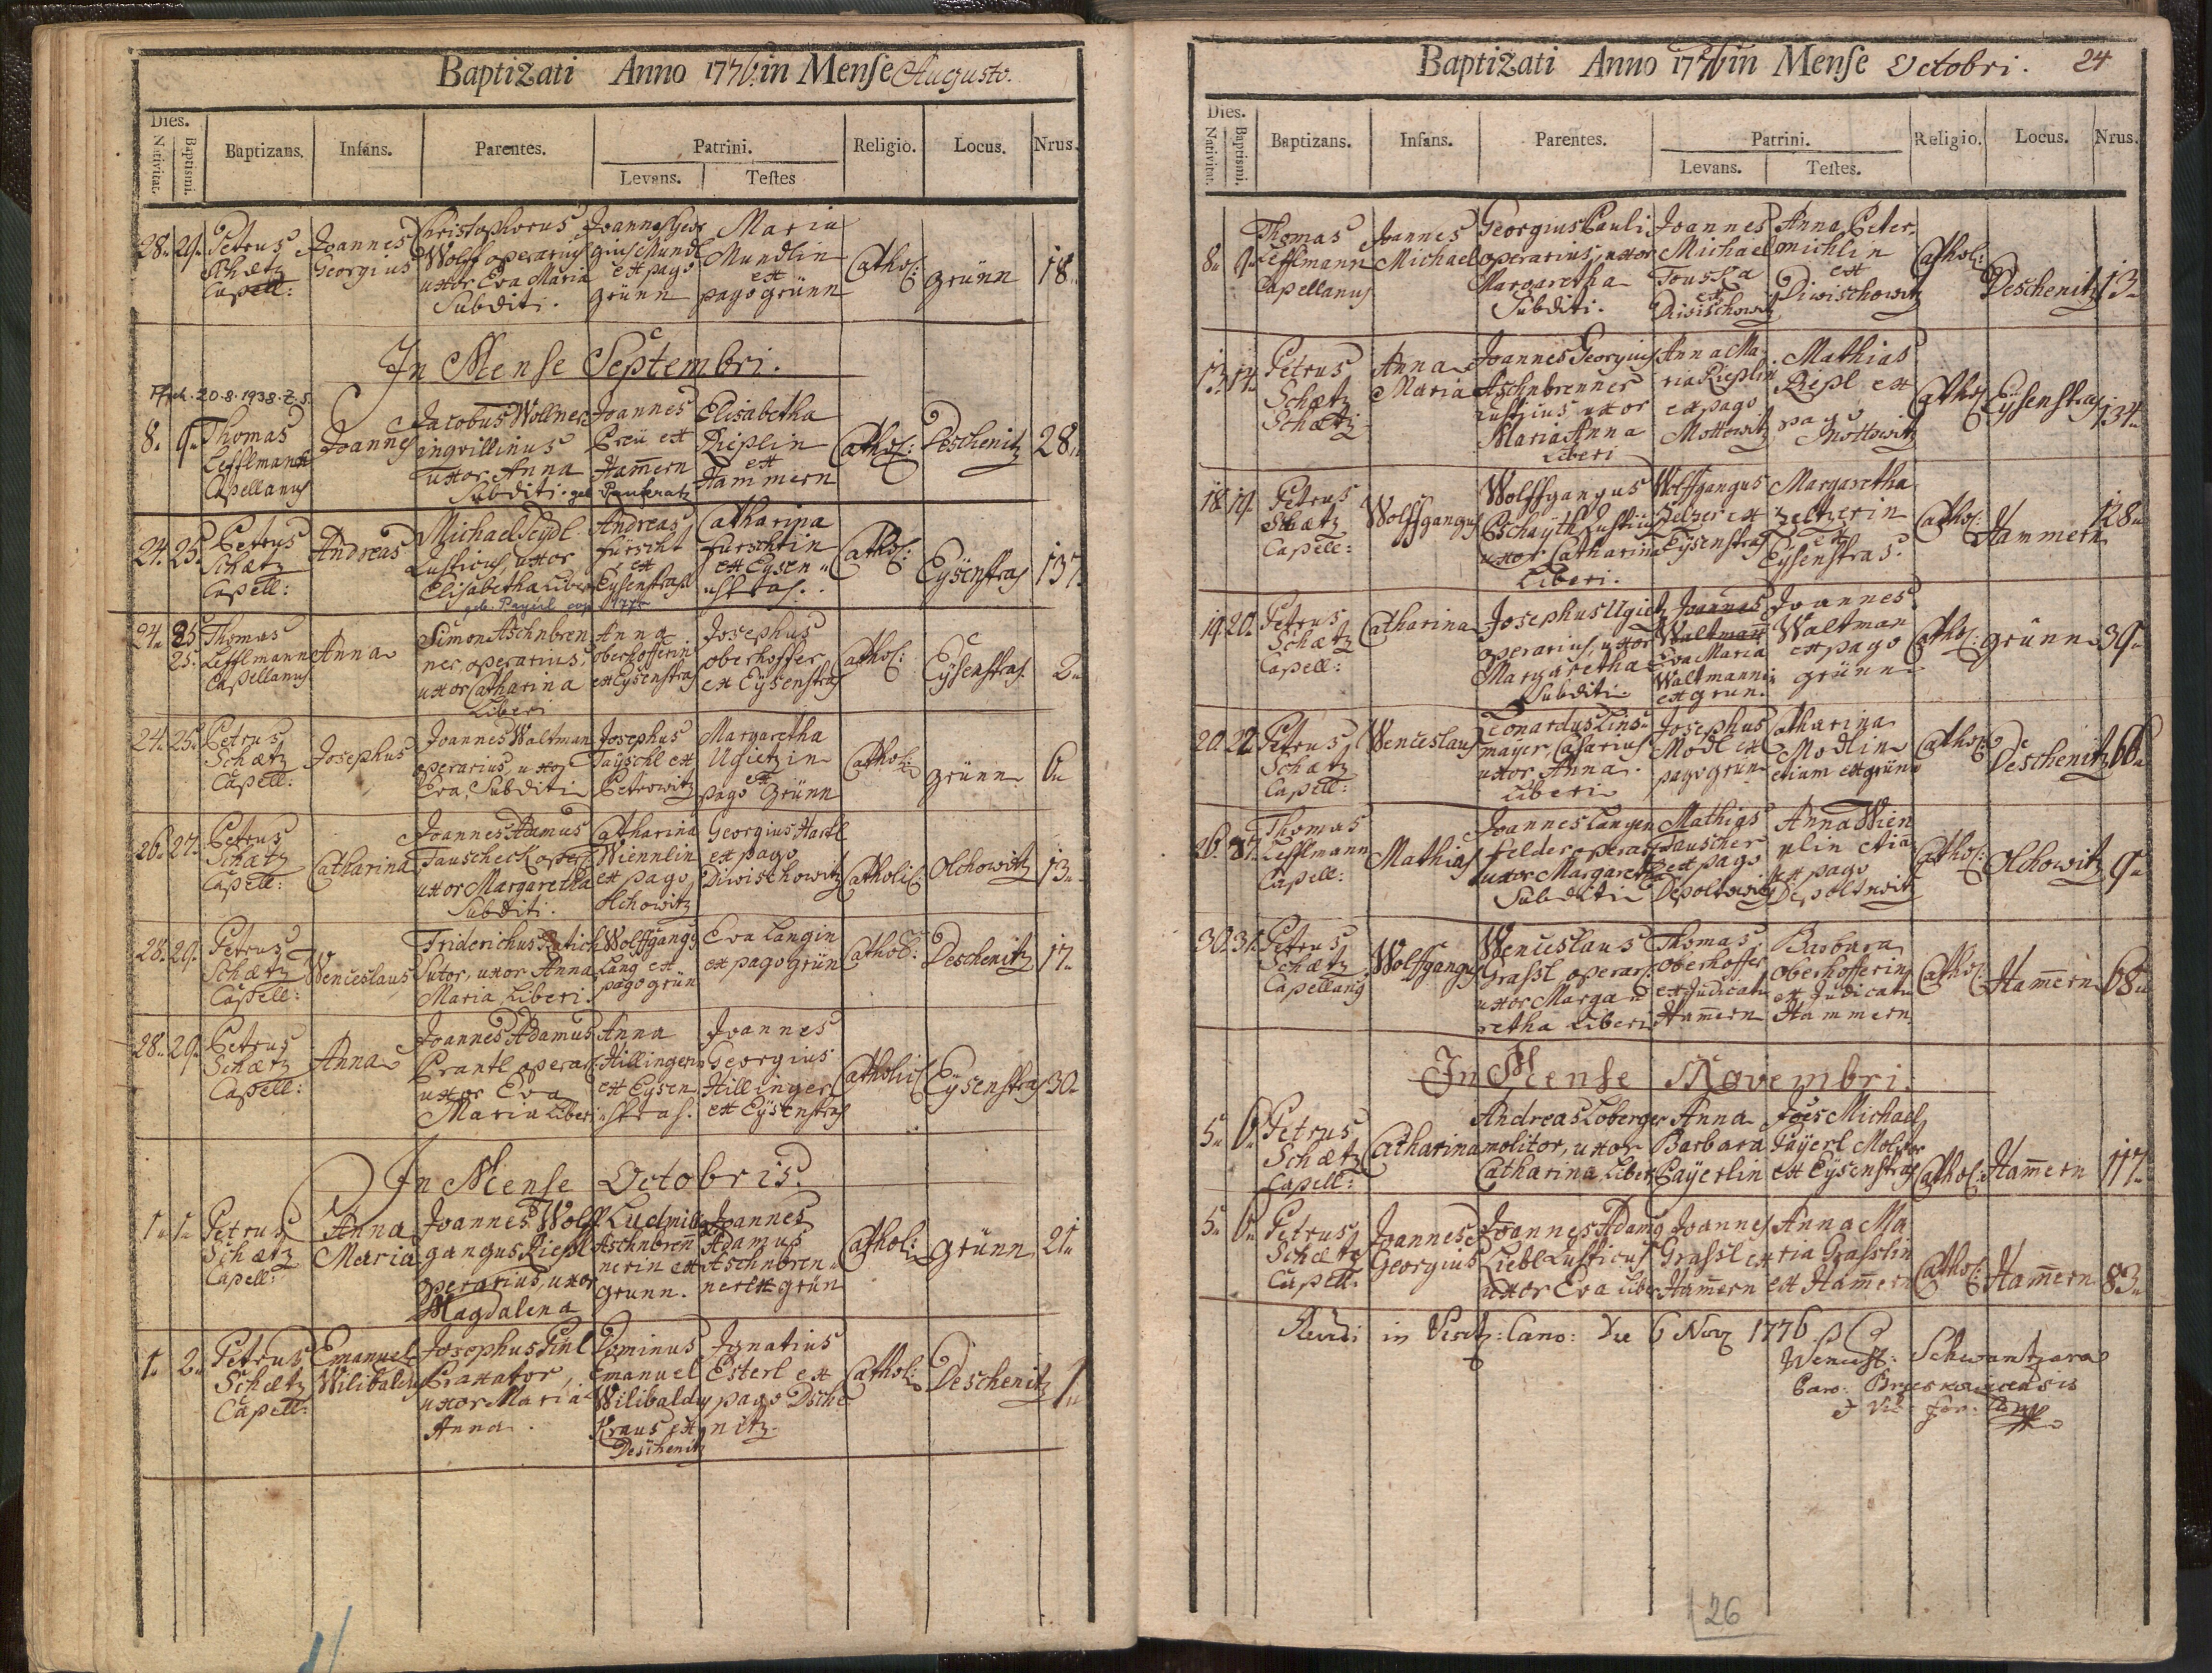 Baptizati Anno 1776. in Mense Augusto.
Dies.
Nativitat. Baptismi. Baptizans. Infans. Parentes. Patrini. Religio. Locus. Nrus.
Levans. Testes
28. 29. Petrus Schætz Capell:
Joannes Georgius
Christophorus Wolff operarius uxor Eva Maria Subditi.
Joannes Geor gius Mundl ex pago grünn
Maria Mundlin ex pago grünn
Cathol: grünn 18.
In Mense Septembri.
20.8.1938.
8. 9. Thomas Lefflmann Capellanus
Joannes
Jacobus Wollner inquilinus uxor Anna Subditi. geb. Pankratz
Joannes Preü ex Ham̄ern
Elisabetha Rieplin ex Hammern
Cathol: Deschenitz 28.
24. 25. Petrus Schætz Capell:
Andreas
Michael Seydl Rusticus, uxor Elisabetha Liberi
geb. Payerl cop. 1775
Andreas Fürscht ex Eysenstrass
Catharina Furschtin ex Eysen stras.
Cathol: Eÿsenstras 137
24. 25. Thomas Lefflmann Capellanus
Anna
Simon Aschnbren ner operarius, uxor Catharina Liberi
Anna oberhofferin ex Eysenstras
Josephus oberhoffer ex Eÿsenstras
Cathol: Eÿsenstras. 2.
24. 25. Petrus Schætz Capell:
Josephus
Joannes Waltman operarius, uxor Eva, Subditi
Josephus Tayschl ex Petrowitz
Margaretha Ugietzin ex pago Grünn
Cathol: grünn 6.
26. 27. Petrus Schætz Capell:
Catharina
Joannes Adamus Tauscheck oper: uxor Margaretha Subditi.
Catharina Wiennlin ex pago Olchowitz
Georgius Hartl ex pago Diwischowitz
Catholic: Olchowitz 13.
28. 29. Petrus Schætz Capell:
Wenceslaus
Friderichus Sutor, uxor Anna Maria, Liberi.
Wolffgang Lang ex pago grün
Eva Langin ex pago grün
Cathol: Deschenitz 17.
28. 29. Petrus Schætz Capell:
Anna
Joannes Adamus Prantl operar: uxor Eva Maria Liberi
Anna Hillingerin ex Eysen stras.
Joannes Georgius Hillinger ex Eÿsenstras
Catholic: Eÿsenstras 30.
In Mense Octobris.
1. 1. Petrus Schætz Capell:
Anna Maria
Joannes Wolff gangus Riepl operarius, uxor Magdalena
Ludmilla Aschnbren̄ nerin ex grunn.
Joannes Adamus Aschnbren ner ex grün
Cathol: grünn 21.
1. 2. Petrus Schætz Capell:
Emanuel Wilibaldus
Josephus Pinl Braxator, uxor Maria Anna.
Dominus Emanuel Wilibaldus Kraus ex Deschenitz
Ignatius Esterl ex pago Desche nitz.
Cathol: Deschenitz 1.
Baptizati Anno 1776 in Mense Octobri. 24
Dies.
Nativitat. Baptismi. Baptizans. Infans. Parentes. Patrini. Religio. Locus. Nrus.
Levans. Testes.
8. 9. Thomas Lefflmann Capellanus
Joannes Michael
Georgius Pauli operarius, uxor Margaretha Subditi.
Joannes Michael Touska ex Diwischowitz
Anna Peter michlin ex Diwischowitz
Cathol: Deschenitz 13.
13. 14. Petrus Schætz
Schætz
Anna Maria
Joannes Georgius Aschnbrenner rusticus uxor Maria Anna Liberi
Anna Ma ria Rieplin ex pago Mottowitz
Mathias Riepl ex pago Mottowitz
Cathol: Eÿsenstras 134.
18. 19. Petrus Schætz Capell:
Wolffgangus
Wolffgangus Rusticus uxor Catharina Liberi.
Wolffgangus Zelzer ex Eÿsenstras
Margaretha Zeltzerin ex Eÿsenstras.
Cathol: Hammern 128.
19. 20. Petrus Schætz Capell:
Catharina
Josephus Ugietz operarius, uxor Margaretha Subditi
Joannes Waltman Eva Maria Waltmannin ex grün.
Joannes Waltman ex pago grünn
Cathol: grünn 39.
20. 22. Petrus Schætz Capell:
Wenceslaus
Leonardus Lins mayer, Casarius uxor Anna. Liberi
Josephus Modl ex pago grün
Catharina Modlin etiam ex grün
Cathol: Deschenitz 66.
26. 27. Thomas Lefflmann Capell:
Mathias
Joannes Langen felder operar: uxor Margaretha Subditi
Mathias Tauscher ex pago Depoltowitz
Anna Wien nlin etiam ex pago Depoltowitz
Cathol: Olchowitz 9.
30. 31. Petrus Schætz Capellanus
Wolffgangus
Wenceslaus Grassl operar: uxor Marga retha Liberi
Thomas oberhoffer ex Judicatu Ham̄ern
Barbara oberhofferin ex Judicatu Hammern
Cathol: Ham̄ern 68.
In Mense Novembri.
5. 6. Petrus Schætz Capell:
Catharina
Andreas Loberger molitor, uxor Catharina Liberi
Anna Barbara Payerlin
Joes Michael Payerl Molitor ex Eÿsenstras
Cathol: Ham̄ern 117.
5. 6. Petrus Schætz Capell:
Joannes Georgius
Joannes Adamg Liebl Rusticus uxor Eva Liberi
Joannes Grassl ex Ham̄ern
Anna Ma ria Grasslin ex Ham̄ern
Cathol: Ham̄ern 83.
in Visit: Cano: Die 6 Nov 1776
Wencesl: Schwantzara
26